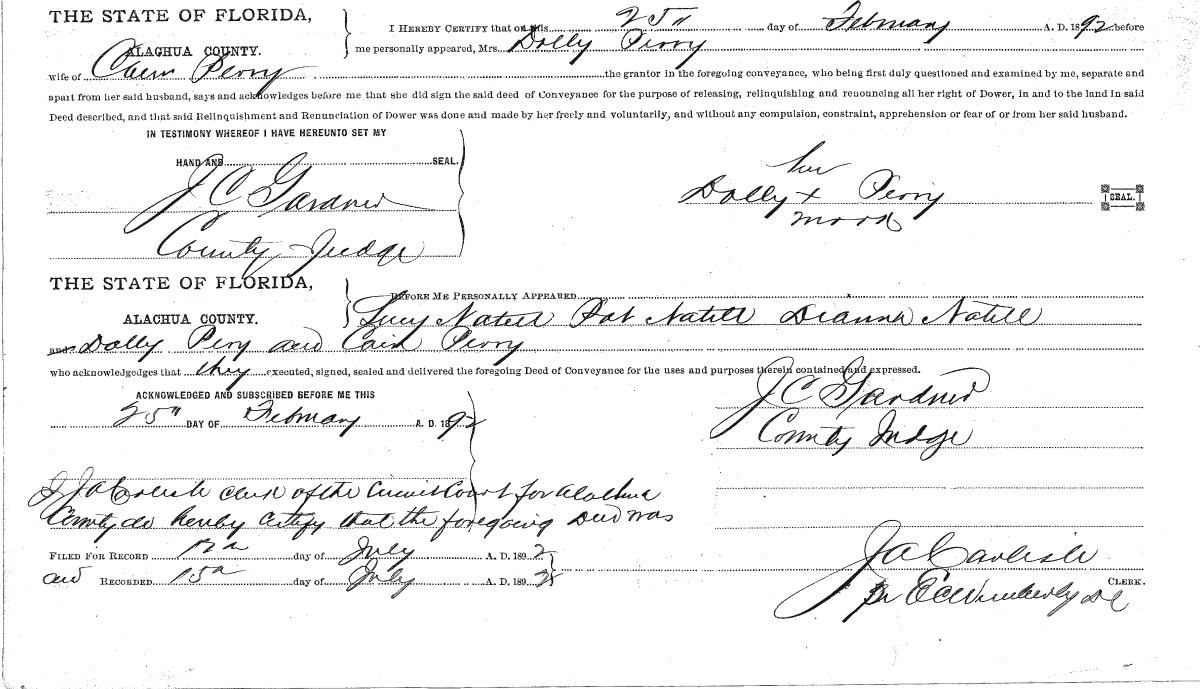 THE STATE OF FLORIDA,
ALACHUA COUNTY.
I HEREBY CERTIFY that on this 25" day of February A. D. 1892 before
me personally appeared, Mrs. Dolly Perry
wife of Cain Perry the grantor in the foregoing conveyance, who being first duly questioned and examined by me, separate and
apart from her said husband, says and acknowledges before me that she did sign the said deed of Conveyance for the purpose of releasing, relinquishing and renouncing all her right of Dower, in and to the land in said
Deed described, and that said Relinquishment and Renunciation of Dower was done and made by her freely and voluntarily, and without any compulsion, constraint, apprehension or fear of or from her said husband.
IN TESTIMONY WHEREOF I HAVE HEREUNTO SET MY
HAND AND SEAL.
J C Gardner
County Judge
her
Dolly x Perry
mark
SEAL.
THE STATE OF FLORIDA,
ALACHUA COUNTY.
BEFORE ME PERSONALLY APPEARED
Lucy Natell Pat Natell Dianna Natell
and Dolly Pery and Cain Perry
who acknowledges that they executed, signed, sealed and delivered the foregoing Deed of Conveyance for the uses and purposes therein contained and expressed.
ACKNOWLEDGED AND SUBSCRIBED BEFORE ME THIS
25" DAY OF February A. D. 1892
J C Gardner
County Judge
I J A Carlisle clerk of the Circuit Court for Alachua
County do hereby certify that the foregoing Deed was
FILED FOR RECORD 12th day of July A. D. 1892
and RECORDED 15th day of July A. D. 1892
J A Carlisle
CLERK.
Per E C Wimberly D C